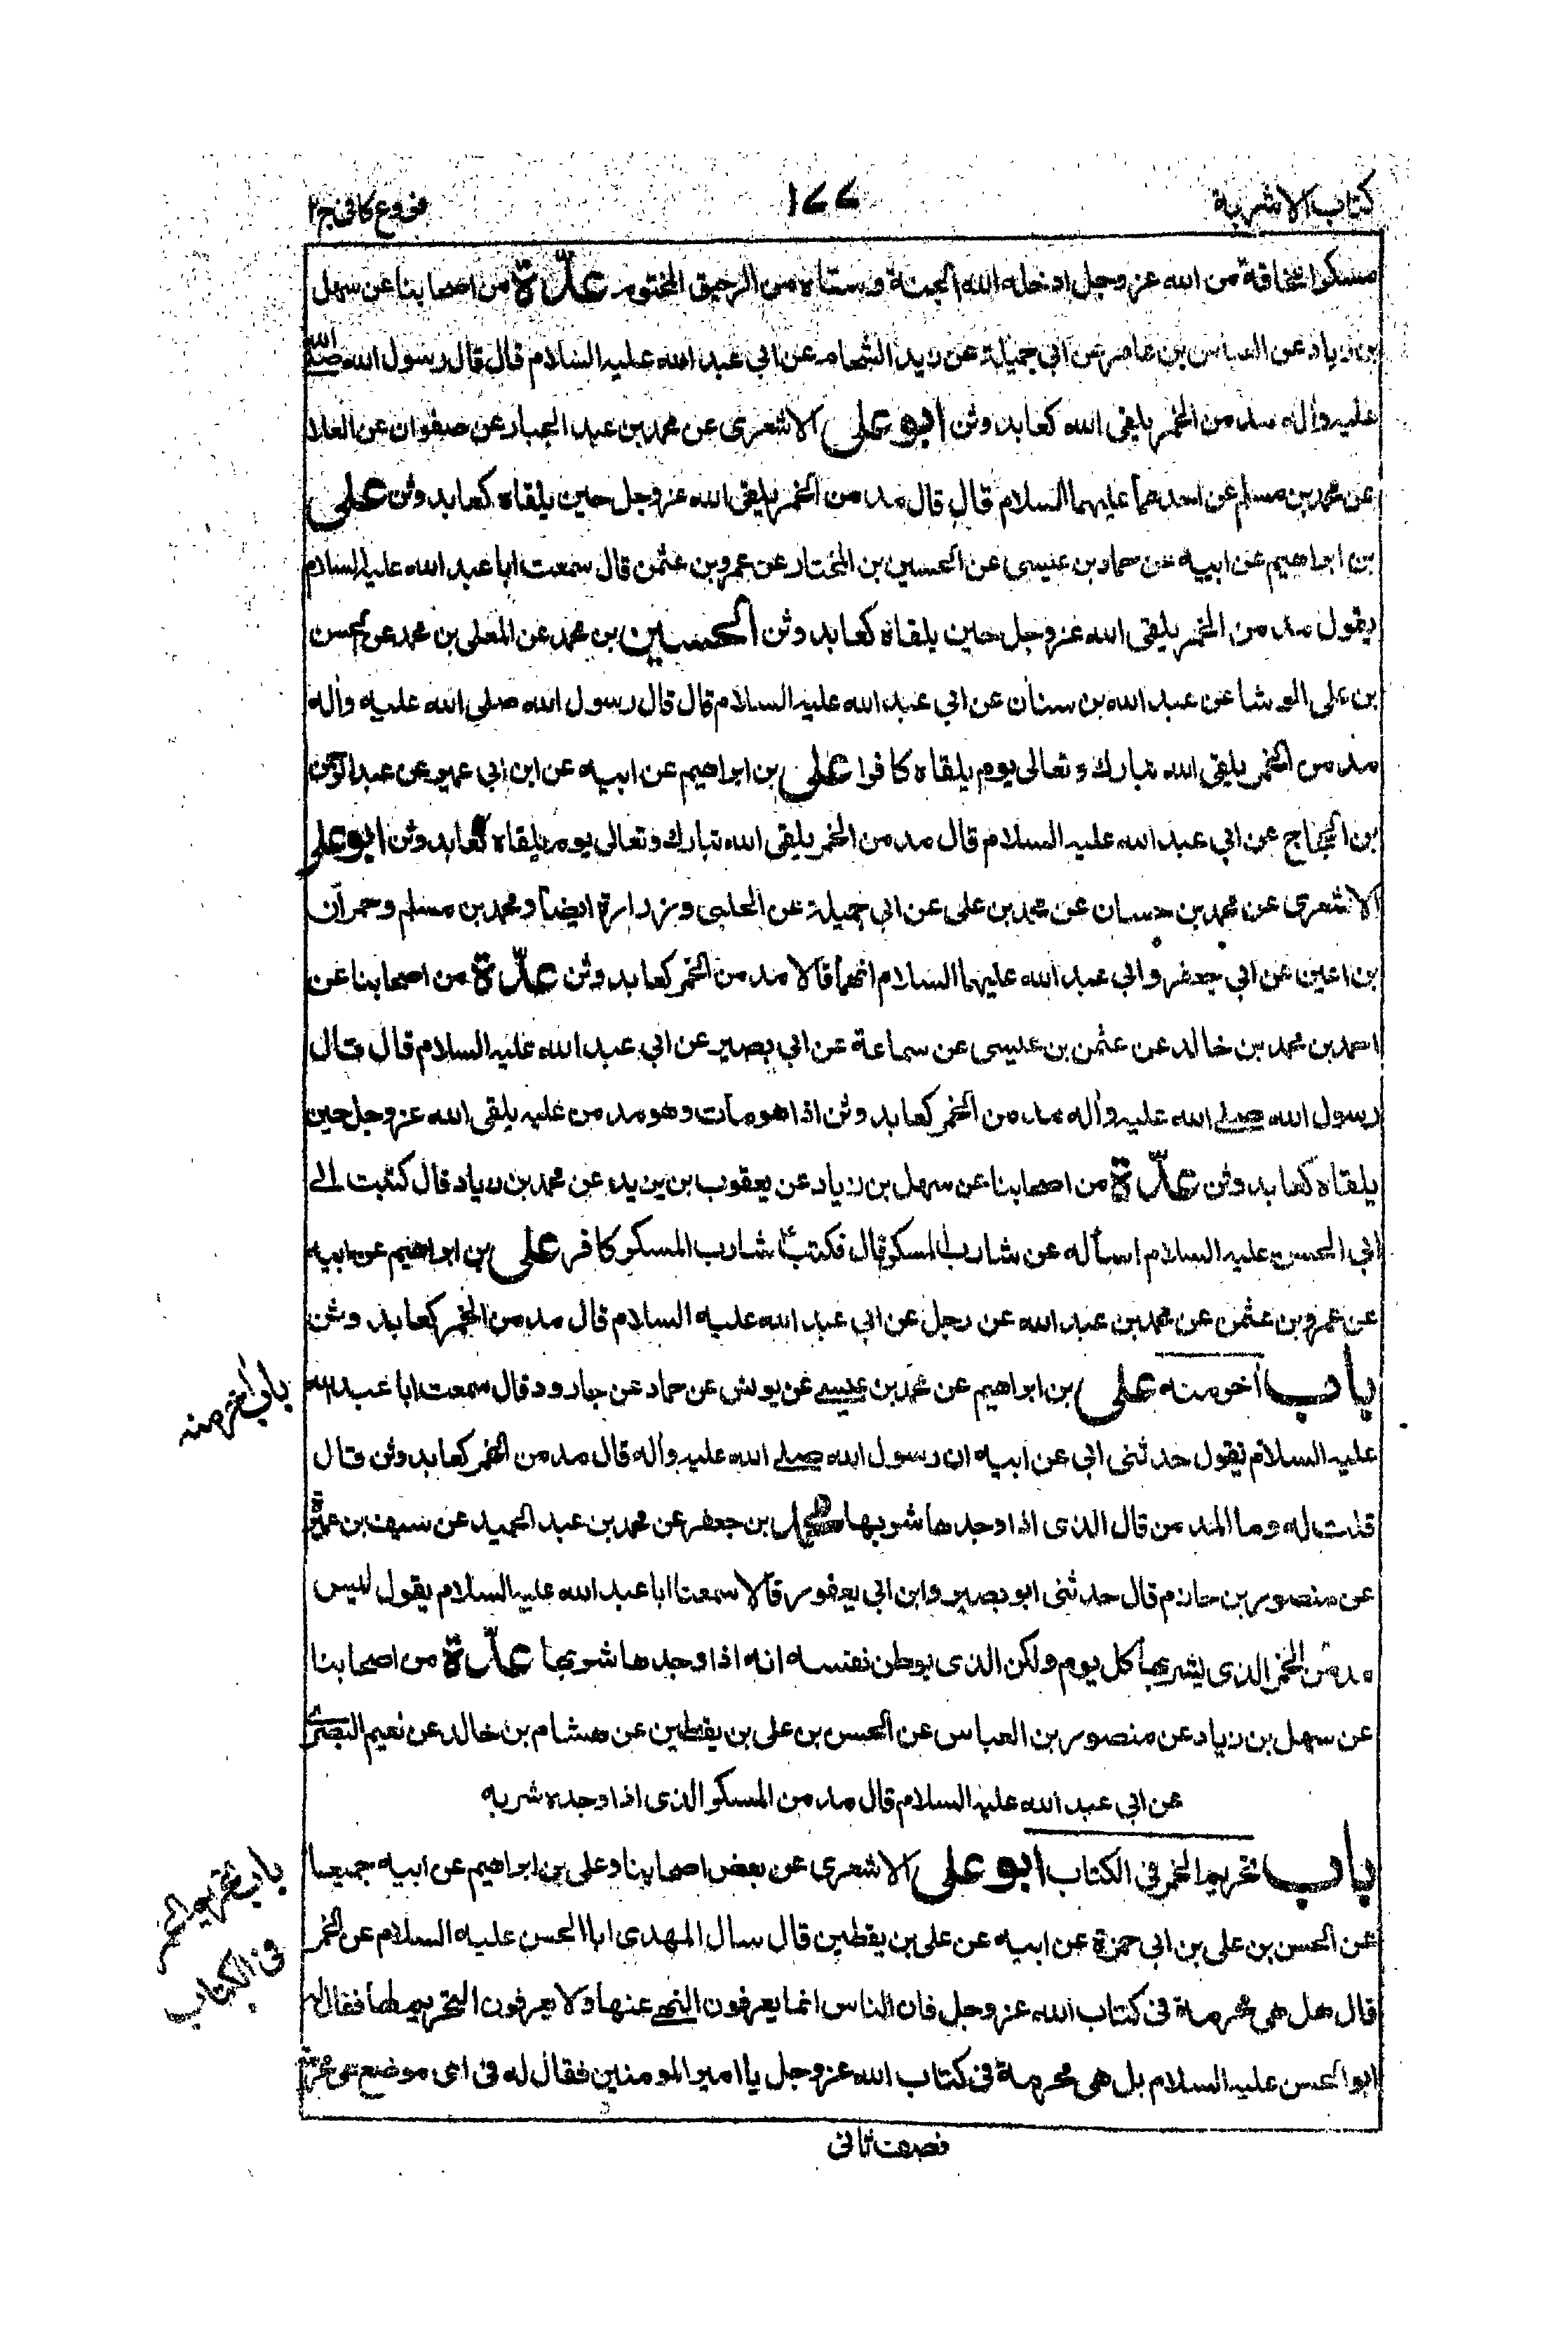 كتاب الاشربة
١٧٧
فروع كافى ج٢
مسكرا مخافة من الله عزوجل ادخله الله الجنة وسقاه من الرحيق المختوم عدّة من اصحابنا عن سهل
بن زياد عن العباس بن عامر عن ابي جميلة عن زيد الشحام عن ابي عبد الله عليه السلام قال قال رسول الله صلى الله
عليه واٰله مدمن الخمر يلقى الله كعابد وثن ابو على الاشعرى عن محمد بن عبد الجبار عن صفوان عن العلا
عن محمد بن مسلم عن احدهما عليهما السلام قال قال مدمن الخمر يلقى الله عزوجل حين يلقاه كعابد وثن على
بن ابراهيم عن ابيه عن حماد بن عيسى عن الحسين بن المختار عن عمرو بن عثمن قال سمعت ابا عبد الله عليه السلام
يقول مدمن الخمر يلقى الله عزوجل حين يلقاه كعابد وثن الحسين بن محمد عن المعلى بن محمد عن الحسن
بن على الوشا عن عبد الله بن سنان عن ابي عبد الله عليه السلام قال قال رسول الله صلى الله عليه واٰله
مدمن الخمر يلقى الله تبارك وتعالى يوم يلقاه كافرا على بن ابراهيم عن ابيه عن ابن ابي عمير عن عبد الرحمن
بن الحجاج عن ابي عبد الله عليه السلام قال مدمن الخمر يلقى الله تبارك وتعالى يوم يلقاه كعابد وثن ابو على
الاشعرى عن محمد بن حسان عن محمد بن على عن ابي جميلة عن الحلبى وزرارة ايضاً ومحمد بن مسلم وحمران
بن اعين عن ابي جعفر وابي عبد الله عليهما السلام انهما قالا مدمن الخمر كعابد وثن عدّة من اصحابنا عن
احمد بن محمد بن خالد عن عثمن بن عيسى عن سماعة عن ابي بصير عن ابي عبد الله عليه السلام قال قال
رسول الله صلى الله عليه واٰله مدمن الخمر كعابد وثن اذا هو مات وهو مدمن عليه يلقى الله عزوجل حين
يلقاه كعابد وثن عدّة من اصحابنا عن سهل بن زياد عن يعقوب بن يزيد عن محمد بن زياد قال كتبت الى
ابي الحسن عليه السلام اسأله عن شارب المسكر قال فكتب ع شارب المسكر كافر على بن ابراهيم عن ابيه
عن عمرو بن عثمن عن محمد بن عبد الله عن رجل عن ابي عبد الله عليه السلام قال مدمن الخمر كعابد وثن
باب اٰخر منه على بن ابراهيم عن محمد بن عيسى عن يونس عن حماد عن جارود قال سمعت ابا عبد الله
باب اٰخر منه
عليه السلام يقول حدثنى ابي عن ابيه ان رسول الله صلى الله عليه واٰله قال مدمن الخمر كعابد وثن قال
قلت له وما المدمن قال الذى اذا وجدها شربها محمد بن جعفر عن محمد بن عبد الحميد عن سيف بن عميرة
عن منصور بن حازم قال حدثنى ابو بصير وابن ابي يعفور قالا سمعنا ابا عبد الله عليه السلام يقول ليس
مدمن الخمر الذى يشربها كل يوم ولكن الذى يوطن نفسه انه اذا وجدها شربها عدّة من اصحابنا
عن سهل بن زياد عن منصور بن العباس عن الحسن بن على بن يقطين عن هشام بن خالد عن نعيم البصرى
عن ابي عبد الله عليه السلام قال مدمن المسكر الذى اذا وجده شربه
باب تحريم الخمر فى الكتاب ابو على الاشعرى عن بعض اصحابنا وعلى بن ابراهيم عن ابيه جميعا
باب تحريم الخمر
فى الكتاب
عن الحسن بن على بن ابي حمزة عن ابيه عن على بن يقطين قال سال المهدى ابا الحسن عليه السلام عن الخمر
قال هل هى محرمة فى كتاب الله عزوجل فان الناس انما يعرفون النهى عنها ولا يعرفون التحريم لها فقال له
ابو الحسن عليه السلام بل هى محرمة فى كتاب الله عزوجل يا امير المومنين فقال له فى اى موضع هى محرمة
نصف ثانى